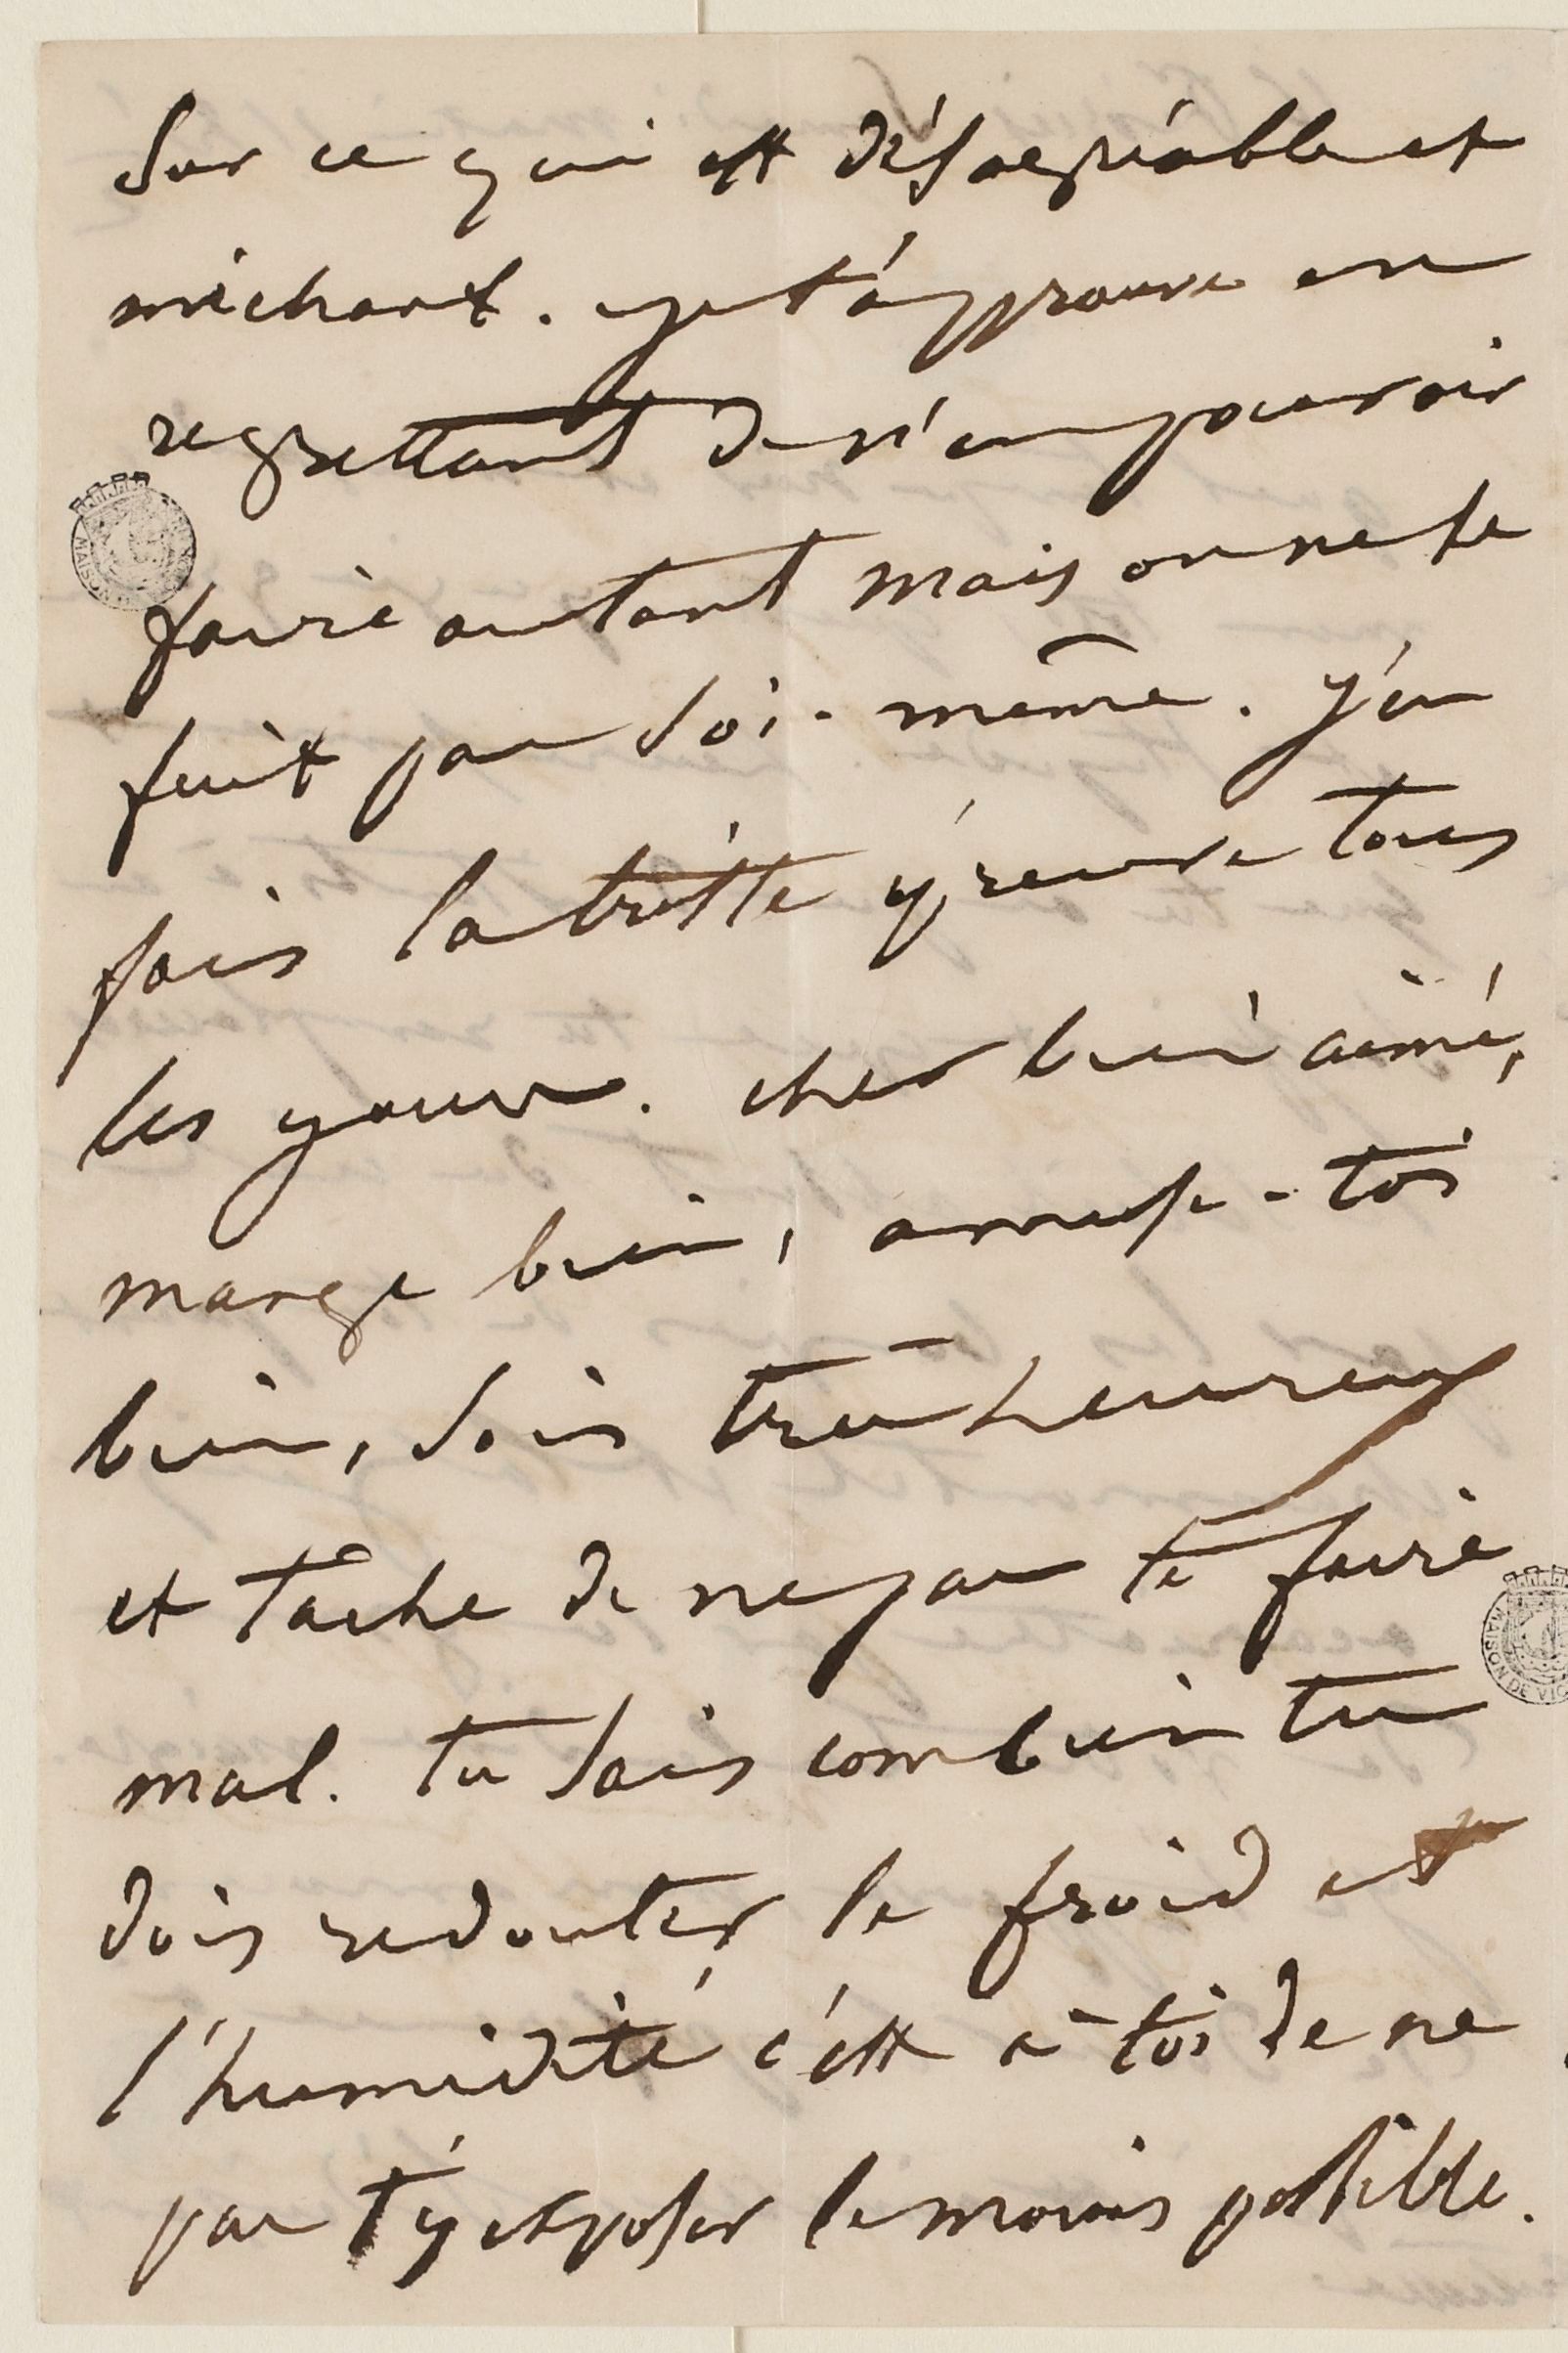 sur ce qui est désagréable et
méchant. je t'approuve en
regrettant de n'en pouvoir
faire autant mais on ne se
fuit pas soi-même. J'en
fais la triste épreuve tous
les jours. cher bien aimé,
mange bien, amuse-toi
bien, sois très heureux
et tâche de ne pas te faire
mal. tu sais combien tu
dois redouter le froid et
l'humidité, c'est à toi de ne
pas t'y exposer le moins possible.